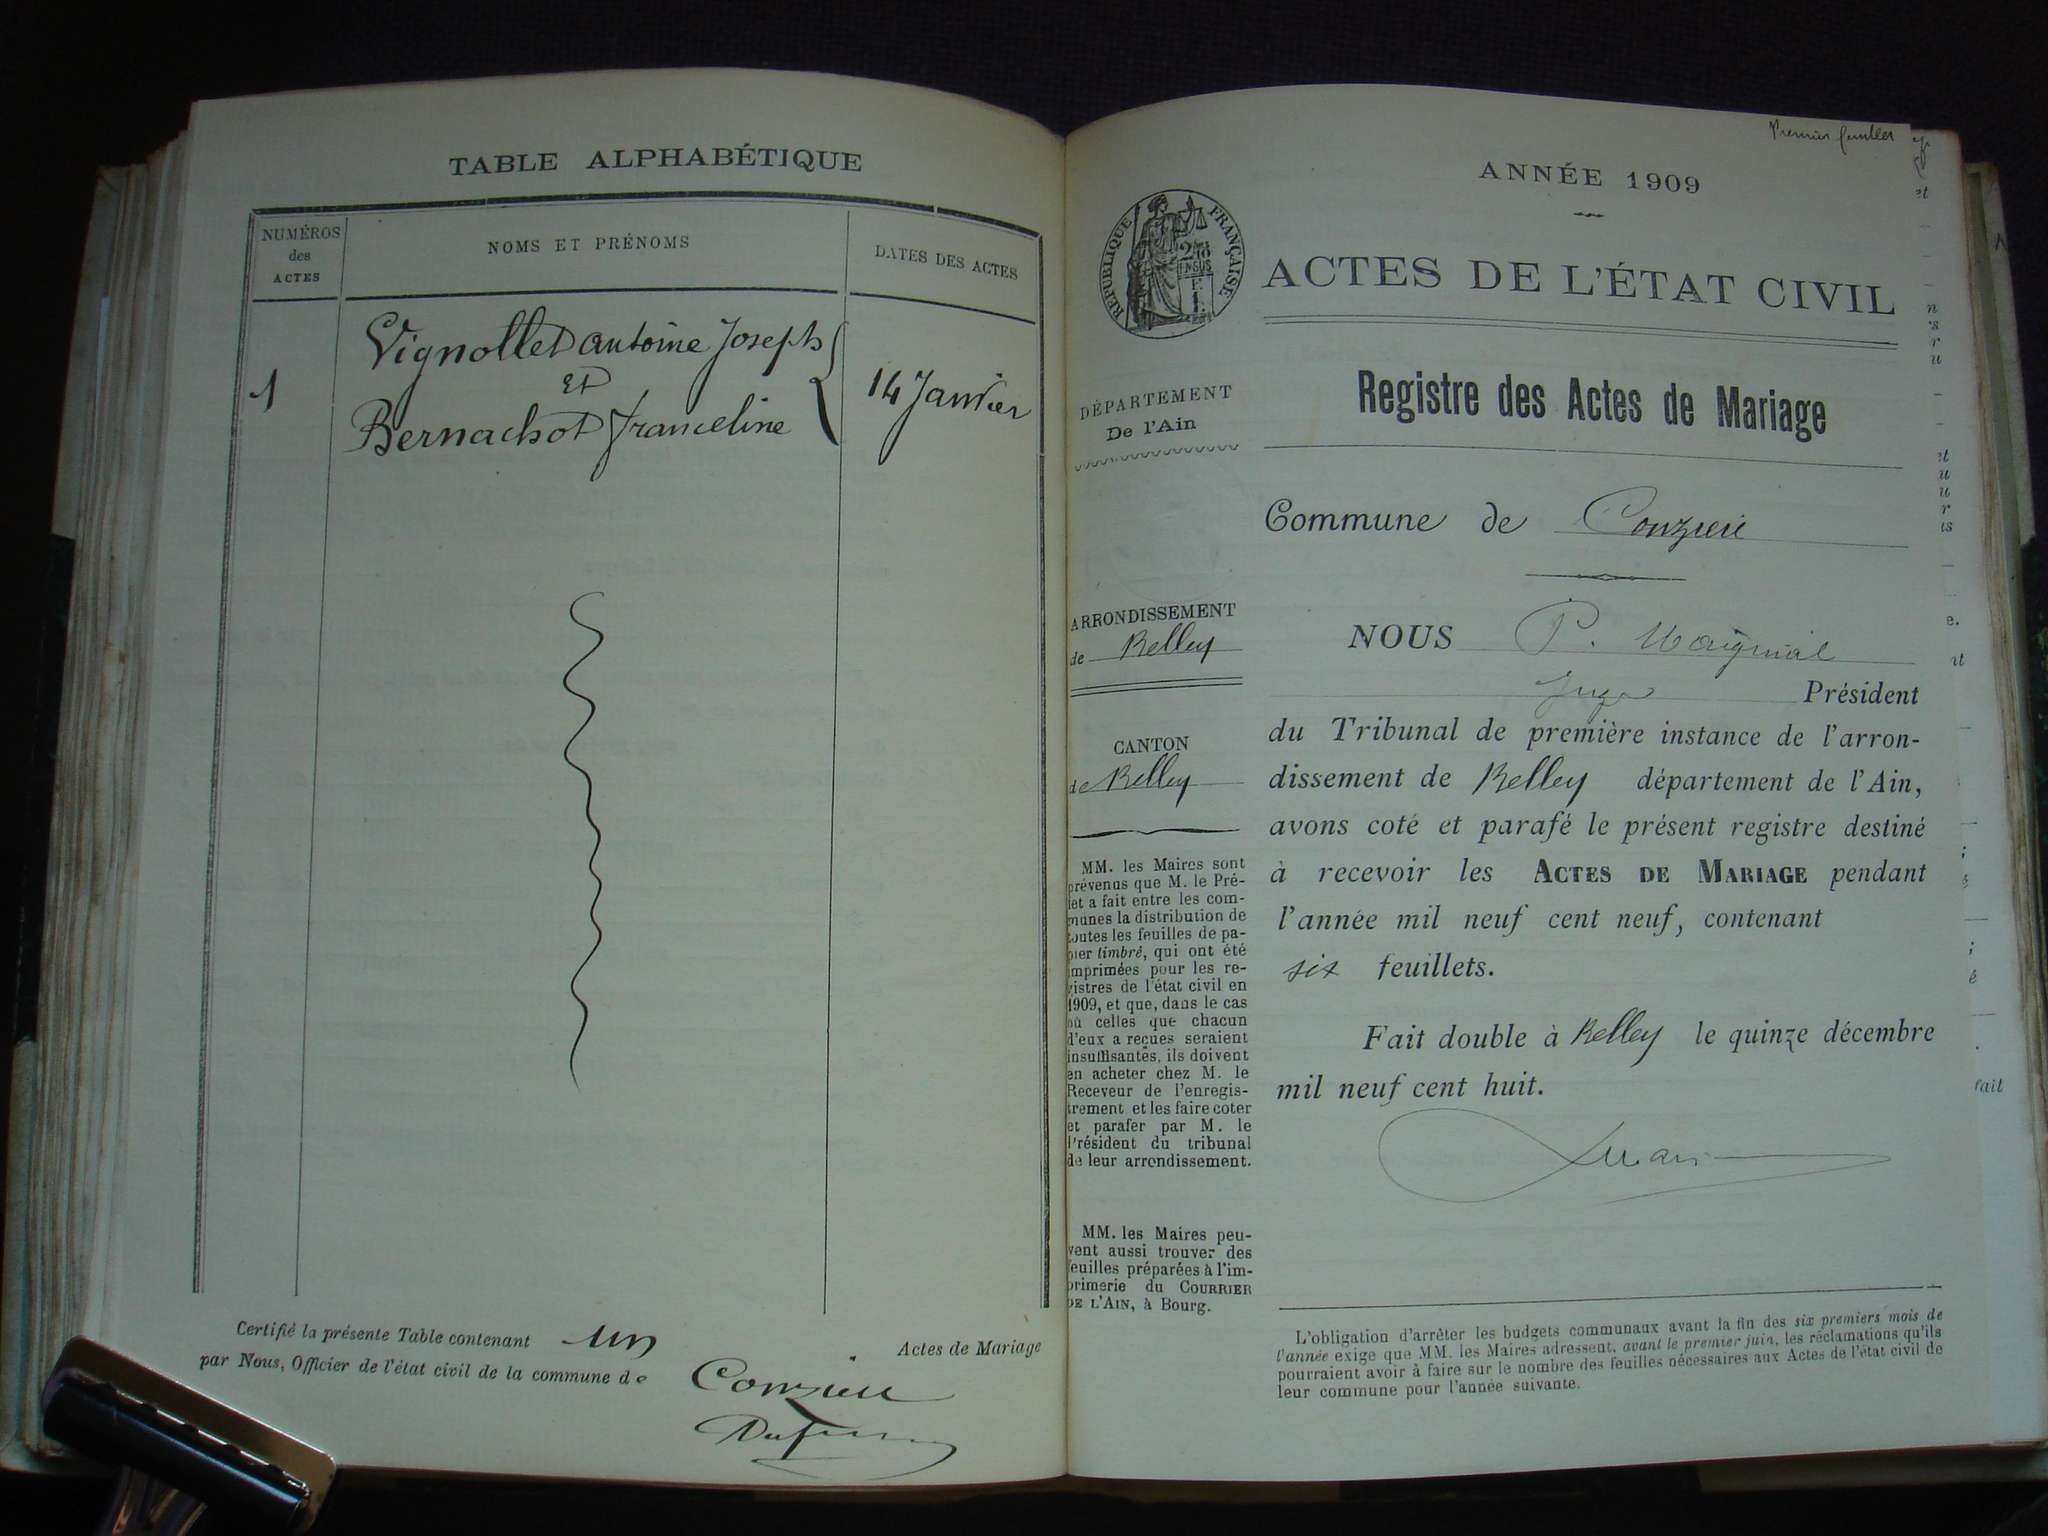 TABLE ALPHABÉTIQUE
NUMÉROS
des
ACTES
NOMS ET PRÉNOMS
DATES DES ACTES
Vignollet antoine Joseph
1
et
14 Janvier
Bernachot franceline
Certifié la présente Table contenant un Actes de Mariage
par Nous, Officier de l'état civil de la commune de Conzieu
Premier feuillet
ANNÉE 1909
RÉPUBLIQUE FRANÇAISE
ACTES DE L'ÉTAT CIVIL
Registre des Actes de Mariage
DÉPARTEMENT
De l'Ain
Commune de Conzieu
ARRONDISSEMENT
de Belley
CANTON
de Belley
MM. les Maires sont
prévenus que M. le Pré-
fet a fait entre les com-
munes la distribution de
toutes les feuilles de pa-
pier timbré, qui ont été
imprimées pour les re-
gistres de l'état civil en
1909, et que, dans le cas
où celles que chacun
d'eux a reçues seraient
insuffisantes, ils doivent
en acheter chez M. le
Receveur de l'enregis-
trement et les faire coter
et parafer par M. le
Président du tribunal
de leur arrondissement.
MM. les Maires peu-
vent aussi trouver des
feuilles préparées à l'im-
primerie du COURRIER
DE L'AIN, à Bourg.
NOUS P.
Juge Président
du Tribunal de première instance de l'arron-
dissement de Belley département de l'Ain,
avons coté et parafé le présent registre destiné
à recevoir les ACTES DE MARIAGE pendant
l'année mil neuf cent neuf, contenant
six feuillets.
Fait double à Belley le quinze décembre
mil neuf cent huit.
L'obligation d'arrêter les budgets communaux avant la fin des six premiers mois de
l'année exige que MM. les Maires adressent, avant le premier juin, les réclamations qu'ils
pourraient avoir à faire sur le nombre des feuilles nécessaires aux Actes de l'état civil de
leur commune pour l'année suivante.